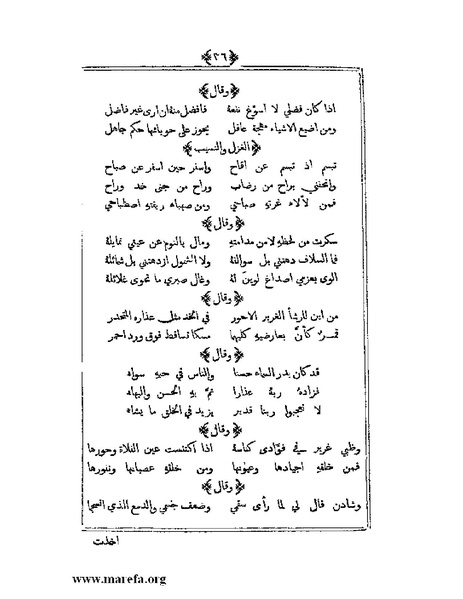 ﴿٣٦﴾
﴿وقال﴾
اذا كان فضلي لا اسوّغ نفعهُ فافضل منهُ ان ارى غير فاضل
ومن اضيع الاشياء مهجة عاقل يجوز على حوبائها حكم جاهل
﴿الغزل والنسيب﴾
تبسم اذ تبسم عن اقاح واسفر حين اسفر عن صباح
واتحفني براح من رضاب وراح من جنى خد وراح
فمن لألاء غرته صباحي ومن صهباء ريقته اصطباحي
﴿وقال﴾
سكرت من لحظهِ لا من مدامتهِ ومال بالنوم عن عيني تمايلهُ
فما السلاف دهتني بل سوالفهُ ولا الشمول ازدهتني بل شمائلهُ
الوى بعزمي اصداغ لوينَ لهُ وغال صبري ما تحوى غلائلهُ
﴿وقال﴾
من اين للرشأ الغرير الاحور في الخد مثل عذاره المتحدر
قمرٌ كأنَّ بعارضيهِ كليهما مسكا تساقط فوق ورد احمر
﴿وقال﴾
قد كان بدر السماء حسنا والناس في حبهِ سواه
فزادهُ ربهُ عذارا تمَّ بهِ الحسن والبهاه
لا تعجبوا ربنا قدير يزيد في الخلق ما يشاه
﴿وقال﴾
وظبي غرير في فؤادى كناسهُ اذا اكتنست عين الفلاة وحورها
فمن خلقهِ اجيادها وعيونها ومن خلقهِ عصيانها ونفورها
﴿وقال﴾
وشادن قال لي لما رأى سقمي وضعف جسمي والدمع الذي انسجما
اخذت
www.marefa.org